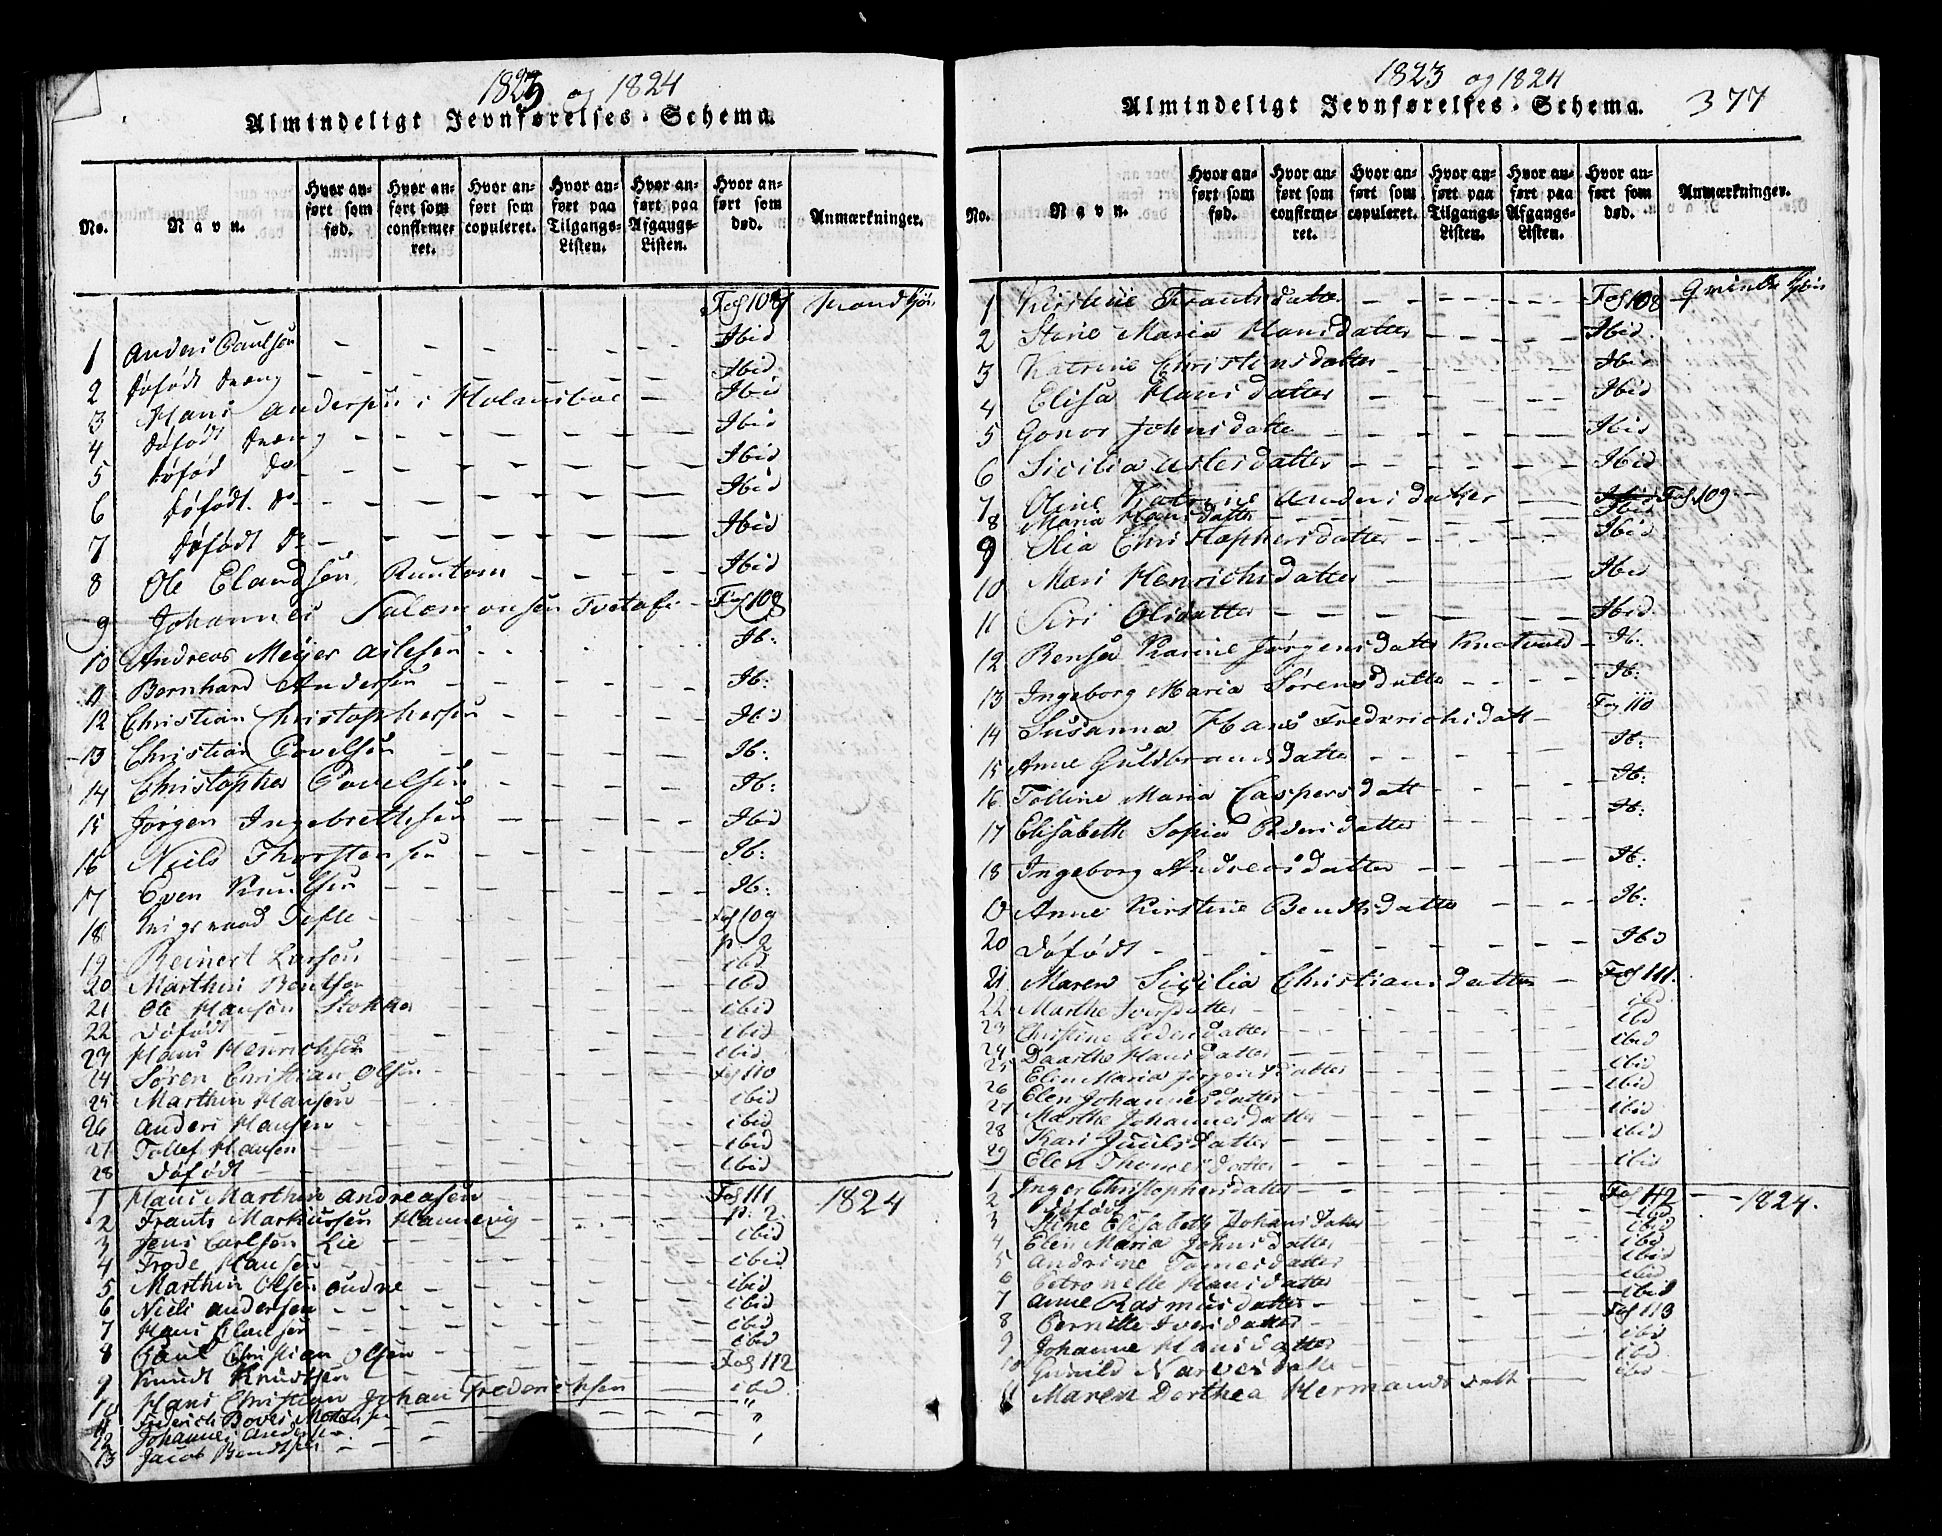 1823 og 1824
Almindeligt Jevnførelses-Schema.
No.
Navn.
Hvor anført som fød.
Hvor anført som confirmeret.
Hvor anført som copuleret.
Hvor anført paa Tilgangs-Listen.
Hvor anført paa Afgangs-Listen.
Hvor anført som død.
Anmærkninger.
Fol 107 Mandkjøn
1 Anders Paulsen Ibid
2 Døfødt Dreng Ibid
3 Hans Andersen i Holmsboe Ibid
4 Døfødt Dreng Ibid
5 Døfød Do Ibid
6 Døfødt Do Ibid
7 Døfødt Do Ibid
8 Ole Elandsen Ibid
9 Johannes Salomonsen Fol 108
10 Andreas Meyer Aslesen Ib:
11 Bernhard Andersen Ib:
12 Christian Christophersen Ibid
13 Christian Povelsen Ib:
14 Christopher Povelsen Ib:
15 Jørgen Ingebrettsen Ibid
16 Niels Thorstensen Ib:
17 Even Knudsen Ib:
18 Fol 109
19 Reinert Larsen p. 2
20 Marthin Bentsen ibd
21 Ole Hansen Stokke ibid
22 Døfødt ibid
23 Hans Henrichsen ibid
24 Søren Christian Olsen Fol 110
25 Marthin Hansen ibid
26 Anders Hansen ibid
27 Tollef Hansen ibid
28 Døfødt ibid
1 Hans Marthin Andreasen Fol 111 1824
2 Frants Markussen Hannevig p. 2.
3 Jens Carlsen Lie ibid
4 Frode Hansen ibid
5 Marthin Olsen ibid
6 Niels Andersen ibid
7 Hans ibid
8 Paul Christian Olsen ibid
9 Knudt Knudsen Fol 112
10 Hans Christian Johan Frederichsen ibid
11 Frederich "
12 Johannes Andersen "
13 Jacob Bendtsen "
1823 og 1824
Almindeligt Jevnførelses-Schema. 377
No.
Navn.
Hvor anført som fød.
Hvor anført som confirmeret.
Hvor anført som copuleret.
Hvor anført paa Tilgangs-Listen.
Hvor anført paa Afgangs-Listen.
Hvor anført som død.
Anmærkninger.
1 Kirstine Frantsdatter Fol 108 Qvindekjøn
2 Stine Maria Hansdatter Ibid.
3 Katrine Christensdatter Ibid
4 Elisa Hansdatter Ibid
5 Gonor Johnsdatter Ibid
6 Sicilia Aslesdatter Ibid
7 Oline Katrine Andersdatter Fol 109
8 Maria Hansdatter Ibid
9 Olia Christophersdatter Ibid
10 Mari Henrichsdatter Ibid
11 Siri Olsdatter Ibid.
12 Karine Jørgensdatter Ib:
13 Ingeborg Maria Sørensdatter Ib:
14 Susanna Hans Frederichsdatt Fol 110
15 Anne Guldbrandsdatter Ib:
16 Tolline Maria Caspersdatt Ib:
17 Elisabeth Sopia Pedersdatter Ib:
18 Ingeborg Andreasdatter Ib:
19 Anne Kirstine Bendtsdatter Ib:
20 Døfødt Ibd
21 Maren Sicilia Christiansdatter Fol 111.
22 Marthe Iversdatter ibd
23 Christine Pedersdatter ibd
24 Daarthe Hansdatter ibid
25 Elen Maria Jørgensdatter ibid
26 Elen Johannesdatter ibid
27 Marthe Johannesdatter ibid
28 Kari Juulsdatter ibid
29 Elen Thomesdatter ibid
1 Inger Christophersdatter Fol 112 1824.
2 Døfødt ibd
3 Stine Elisabeth Johansdatter ibid
4 Elen Maria Johnsdatter ibd
5 Andrine Tomesdatter ibid
6 Petronelle Hansdatter ibid
7 Anne Rasmusdatter ibid
8 Pernille Iversdatter Fol 113
9 Johanne Hansdatter ibid
10 Gunild Narvesdatte ibid
11 Maren Dorthea Hermansdatt ibid